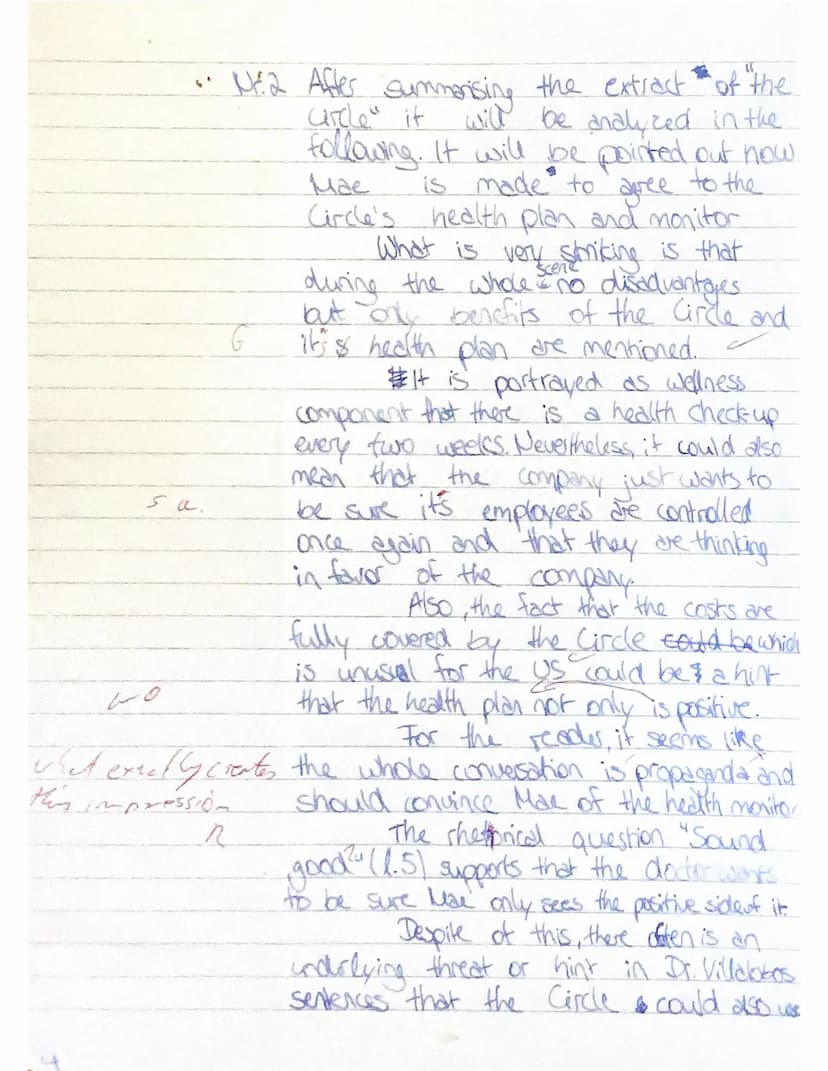 Nr.2 After summarising the extract of "the
Circle" it will be analyzed in the
following. It will be pointed out how
Mae is made to agree to the
Circle's health plan and monitor
What is very striking is that
scene
during the whole no disadvantages
but only benefits of the Circle and
G it's health plan are mentioned.
It is portrayed as wellness
component that there is a health check-up
every two weeks. Nevertheless, it could also
mean that the company just wants to
s.a. be sure it's employees are controlled
once again and that they are thinking
in favor of the company.
Also, the fact that the costs are
fully covered by the Circle could be which
is unusual for the US could be a hint
wo that the health plan not only is positive.
For the reader, it seems like
what exactly creates the whole convesation is propaganda and
this impression should convince Mae of the health monitor
R The rhetorical question "Sound
good?" (l.5) supports that the doctor wants
to be sure Mae only sees the positive side of it.
Despite of this, there often is an
underlying threat or hint in Dr. Villalobos
sentences that the Circle could also use
4